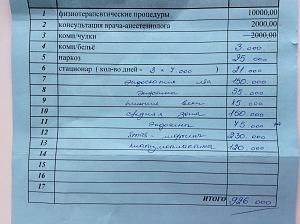 1 физиотерапевтические процедуры 10000,00
2 консультация врача-анестезиолога 2000,00
3 комп/чулки 2000,00
4 комп/бельё 3 000
5 наркоз 25 000
6 стационар (кол-во дней - 3 × 7 000) 21 000
7 эндоскопия лба 150 000
8
9 нижние веки
10 средняя зона 150 000
11
12 230 000
13 120 000
14
15
16
17
ИТОГО 926 000